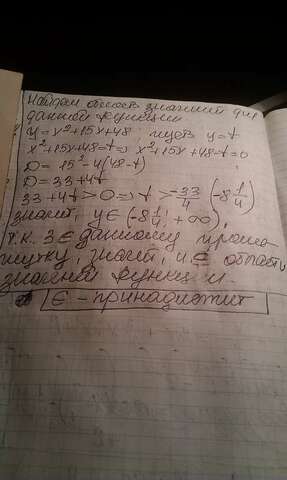 Найдем область значений для
данной функции
y = x² + 15x + 48 пусть y = t
x² + 15x + 48 = t => x² + 15x + 48 - t = 0
D = 15² - 4(48 - t)
D = 33 + 4t
33 + 4t > 0 => t > -33/4 (-8 1/4)
значит, y ∈ (-8 1/4, +∞),
т.к. 3 ∈ данному проме
жутку, значит, и ∈ области
значений функции.
∈ - принадлежит